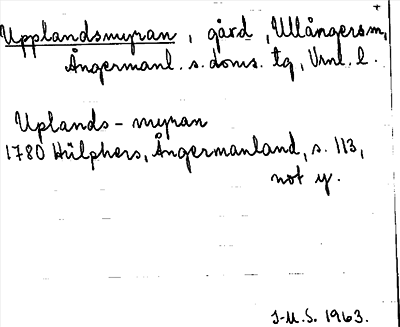 Upplandsmyran, gård, Ullångers sn,
Ångermanl. s. doms. tg, Vrnl. l.
Uplands-myran
1780 Hülphers, Ångermanland, s. 113,
not y.
J-M.S. 1963.